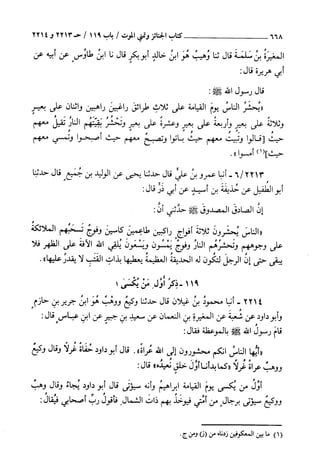 ٦٦٨ ــــــــــــــــــ كتاب الجنائز وتمني الموت / باب ١١٩ / حـ ٢٢١٣ و ٢٢١٤
المغيرة بن سلمة قال ثنا وُهيبٌ هُوَ ابنُ خالدٍ أبو بكرٍ قال نا ابنُ طاوُسٍ عن أبيه عن
أبي هريرة قال:
قال رسول الله ﷺ:
«يُحشر الناسُ يومَ القيامة على ثلاثِ طرائقَ راغبين راهبين واثنان على بعيرٍ
وثلاثةٌ على بعيرٍ وأربعةٌ على بعيرٍ وعشرةٌ على بعيرٍ وتَحشُرُ بقيّتهُم النارُ تَقيلُ معهم
حيثُ [قالوا وتبيتُ معهم حيثُ باتوا وتصبحُ معهم حيث أصبحوا وتُمسي معهم
حيثُ](١) أمسوا».
٦/٢٢١٣ - أنبا عمرو بن عليٍّ قال حدثنا يحيى عن الوليد بن جُميعٍ قال حدثنا
أبو الطفيل عن حُذيفةَ بن أَسِيدٍ عن أبي ذرٍّ قال:
إن الصادقَ المصدوقَ ﷺ حدّثني أن:
«الناسَ يُحشرون ثلاثةَ أفواجٍ راكبين طاعِمينَ كاسين وفوجٌ تسحبُهم الملائكةُ
على وجوههم وتحشرُهم النارُ وفوجٌ يمشون ويسعون يُلقي اللهُ الآفةَ على الظهر فلا
يبقى حتى إن الرجلَ لتكون له الحديقةُ العظيمةُ يعطيها بذاتِ القَتَب لا يقدرُ عليها».
١١٩ - ذِكرُ أوّلِ مَنْ يُكسَى
٢٢١٤ - أنبا محمودُ بنُ غيلان قال حدثنا وكيعٌ ووهبٌ هُوَ ابنُ جرير بن حازمٍ
وأبو داود عن شعبةَ عن المغيرةِ بن النعمان عن سعيدِ بن جبيرٍ عن ابن عباسٍ قال:
قامَ رسولُ الله ﷺ بالموعظة فقال:
«أيها الناسُ انكم محشورون إلى الله عُراةً». قال أبو داود حُفاةً غُرلًا وقال وكيعٌ
ووهبٌ عراةً غُرلًا «كما بدأنا أوّلَ خلقٍ نُعيدُه» قال:
أوّلُ مَن يُكسى يومَ القيامة إبراهيمُ وأنه سيؤتى قال أبو داود يُجاءُ وقال وهبٌ
ووكيعٌ سيؤتى برجالٍ من أمّتي فيؤخذُ بهم ذاتَ الشمال فأقولُ ربِّ أصحابي فيُقالُ:
(١) ما بين المعكوفين زدناه من (ز) ومن ج.